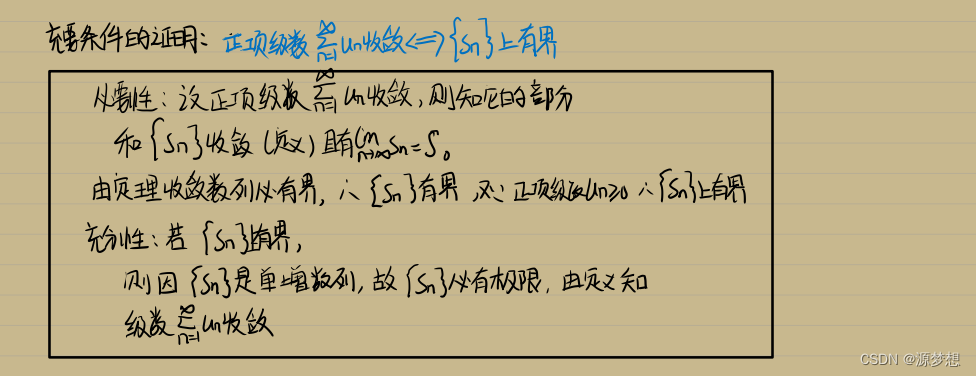 充要条件的证明：正项级数∑_{n=1}^{∞}un收敛<=>{Sn}上有界
必要性：设正项级数∑_{n=1}^{∞}un收敛，则知它的部分
和{Sn}收敛(定义)且有lim_{n→∞}Sn=S。
由定理收敛数列必有界，∴{Sn}有界 又∵正项级数un≥0 ∴{Sn}上有界
充分性：若{Sn}上有界，
则因{Sn}是单增数列，故{Sn}必有极限，由定义知
级数∑_{n=1}^{∞}un收敛
CSDN @源梦想